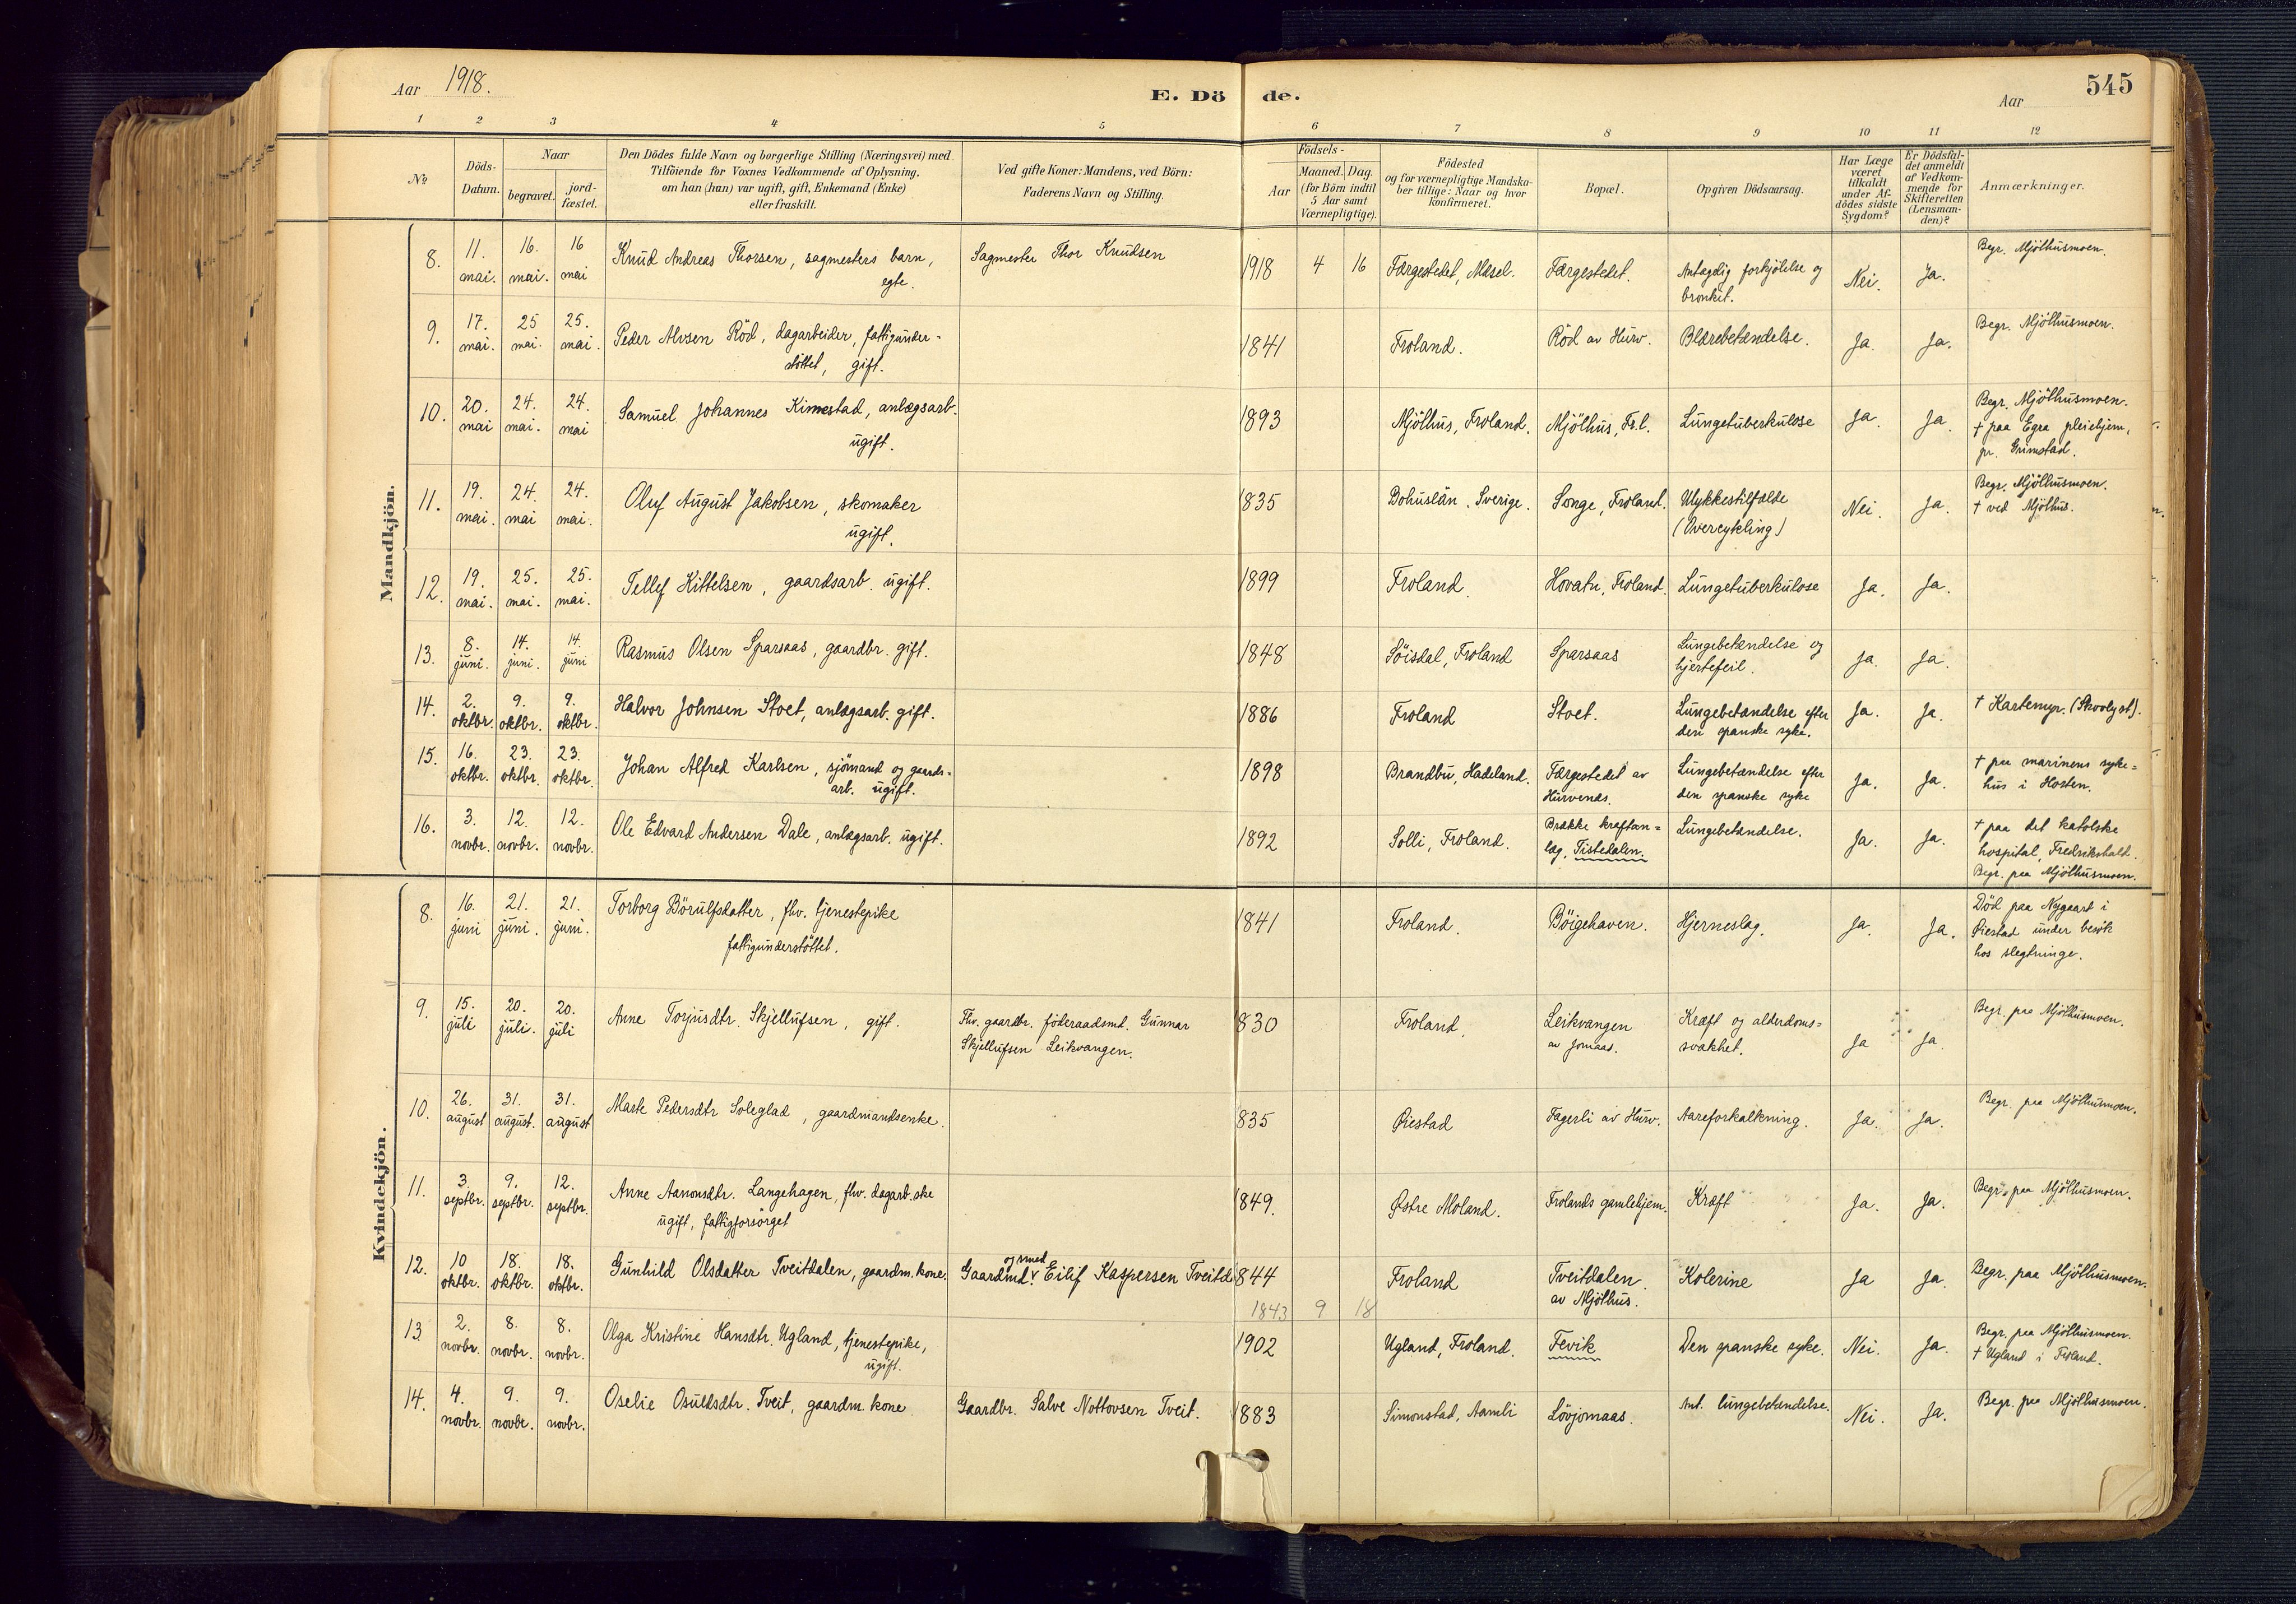 Aar 1918.
E. Döde.
Aar
545
1 2 3 4 5 6 7 8 9 10 11 12
No
Döds-Datum.
Naar
begravet.
jord-fæstet.
Den Dödes fulde Navn og borgerlige Stilling (Næringsvei) med
Tilföiende for Voxnes Vedkommende af Oplysning,
om han (hun) var ugift, gift, Enkemand (Enke)
eller fraskilt.
Ved gifte Koner: Mandens, ved Börn:
Faderens Navn og Stilling.
Födsels-
Aar
Maaned. Dag.
(for Börn indtil
5 Aar samt
Værnepligtige).
Födested
og for værnepligtige Mandska-
ber tillige: Naar og hvor
konfirmeret.
Bopæl.
Opgiven Dödsaarsag.
Har Læge
været
tilkaldt
under Af-
dödes sidste
Sygdom?
Er Dödsfal-
det anmeldt
af Vedkom-
mende for
Skifteretten
(Lensman-
den)?
Anmærkninger.
Mandkjön.
8. 11. mai. 16. mai. 16 mai Knud Andreas Thorsen, sagmesters barn, egte. Sagmester Thor Knudsen 1918 4 16 Færgestedet, Messel. Færgestedet. Antagelig forkjölelse og bronkit. Nei. Ja. Begr. Mjölhusmoen.
9. 17. mai. 25 mai. 25. mai. Peder Alvsen Röd, dagarbeider, fattigunder-støttet, gift. 1841 Froland. Röd av Hurv. Blærebetændelse. Ja. Ja. Begr. Mjölhusmoen.
10. 20. mai 24. mai. 24. mai Samuel Johannes Kimestad, anlægsarb. ugift. 1893 Mjölhus, Froland. Mjölhus, Frl. Lungetuberkulose Ja. Ja. Begr. Mjölhusmoen. † paa Egra pleiehjem, pr. Grimstad.
11. 19. mai. 24. mai 24. mai. Oluf August Jakobsen, skomaker ugift. 1835 Bohuslän. Sverige. Songe, Froland. Ulykkestilfælde (Overcykling) Nei. Ja. Begr. Mjölhusmoen. † ved Mjölhus.
12. 19. mai. 25. mai. 25. mai. Tellef Kittelsen, gaardsarb. ugift. 1899 Froland. Hovatn, Froland. Lungetuberkulose Ja. Ja.
13. 8. juni. 14. juni. 14. juni Rasmus Olsen Sparsaas, gaardbr. gift. 1848 Söisdal, Froland Sparsaas Lungebetændelse og hjertefeil. Ja. Ja.
14. 2. oktbr. 9. oktbr. 9. oktbr. Halvor Johnsen Stoet, anlægsarb. gift. 1886 Froland Stoet. Lungebetændelse efter den spanske syke. Ja. Ja. † Kartemyr. (Skovlyst).
15. 16. oktbr. 23. oktbr. 23. oktbr. Johan Alfred Karlsen, sjömand og gaards-arb. ugift. 1898 Brandbu, Hadeland. Færgestedet av Hurvenes. Lungebetændelse efter den spanske syke Ja. Ja. † paa marinens syke-hus i Horten.
16. 3. novbr. 12. novbr. 12. novbr. Ole Edvard Andersen Dale, anlægsarb. ugift. 1892 Solli, Froland. Brække kraftan-læg, Tistedalen. Lungebetændelse. Ja. Ja. † paa det katolske hospital, Fredrikshald. Begr. paa Mjölhusmoen.
Kvindekjön.
8. 16. juni 21. juni. 21. juni. Torborg Börulfsdatter, fhv. tjenestepike fattigunderstöttet. 1841 Froland. Böigehaven. Hjerneslag. Ja. Ja. Död paa Nygaard i Øiestad under besök hos slegtninge.
9. 15. juli 20. juli. 20. juli Anne Torjusdtr. Skjellufsen, gift. Fhv. gaardbr. föderaadsmd. Gunnar Skjellufsen Leikvangen. 1830 Froland. Leikvangen av Jomaas. Kræft og alderdoms-svakhet. Ja Ja. Begr. paa Mjölhusmoen.
10. 26. august 31. august. 31. august Marte Pedersdtr Soleglad, gaardmandsenke. 1835 Øiestad Fagerli av Hurv. Aareforkalkning. Ja. Ja. Begr. paa Mjölhusmoen.
11. 3. septbr. 9. septbr. 12. septbr. Anne Aanonsdtr. Langehagen, fhv. dagarb.ske ugift, fattigforsörget 1849. Østre Moland. Frolands gamlehjem. Kræft Ja. Ja. Begr. paa Mjölhusmoen.
12. 10 oktbr. 18. oktbr. 18. oktbr. Gunhild Olsdatter Tveitdalen, gaardm. kone. Gaardmd. og smed Eilif Kaspersen Tveitd 1844 Froland Tveitdalen av Mjölhus. Kolerine Ja Ja. Begr. paa Mjölhusmoen.
1843 9 18
13 2. novbr. 8. novbr. 8. novbr. Olga Kristine Hansdtr. Ugland, tjenestepike, ugift. 1902 Ugland, Froland. Fevik Den spanske syke. Nei. Ja. Begr. paa Mjölhusmoen. † Ugland i Froland.
14. 4. novbr. 9. novbr. 9. novbr. Oselie Osuldsdtr. Tveit, gaardm. kone Gaardbr. Salve Nottovsen Tveit. 1883 Simonstad, Aamli Lövjomaas. Ant. lungebetændelse. Nei. Ja. Begr. paa Mjölhusmoen.